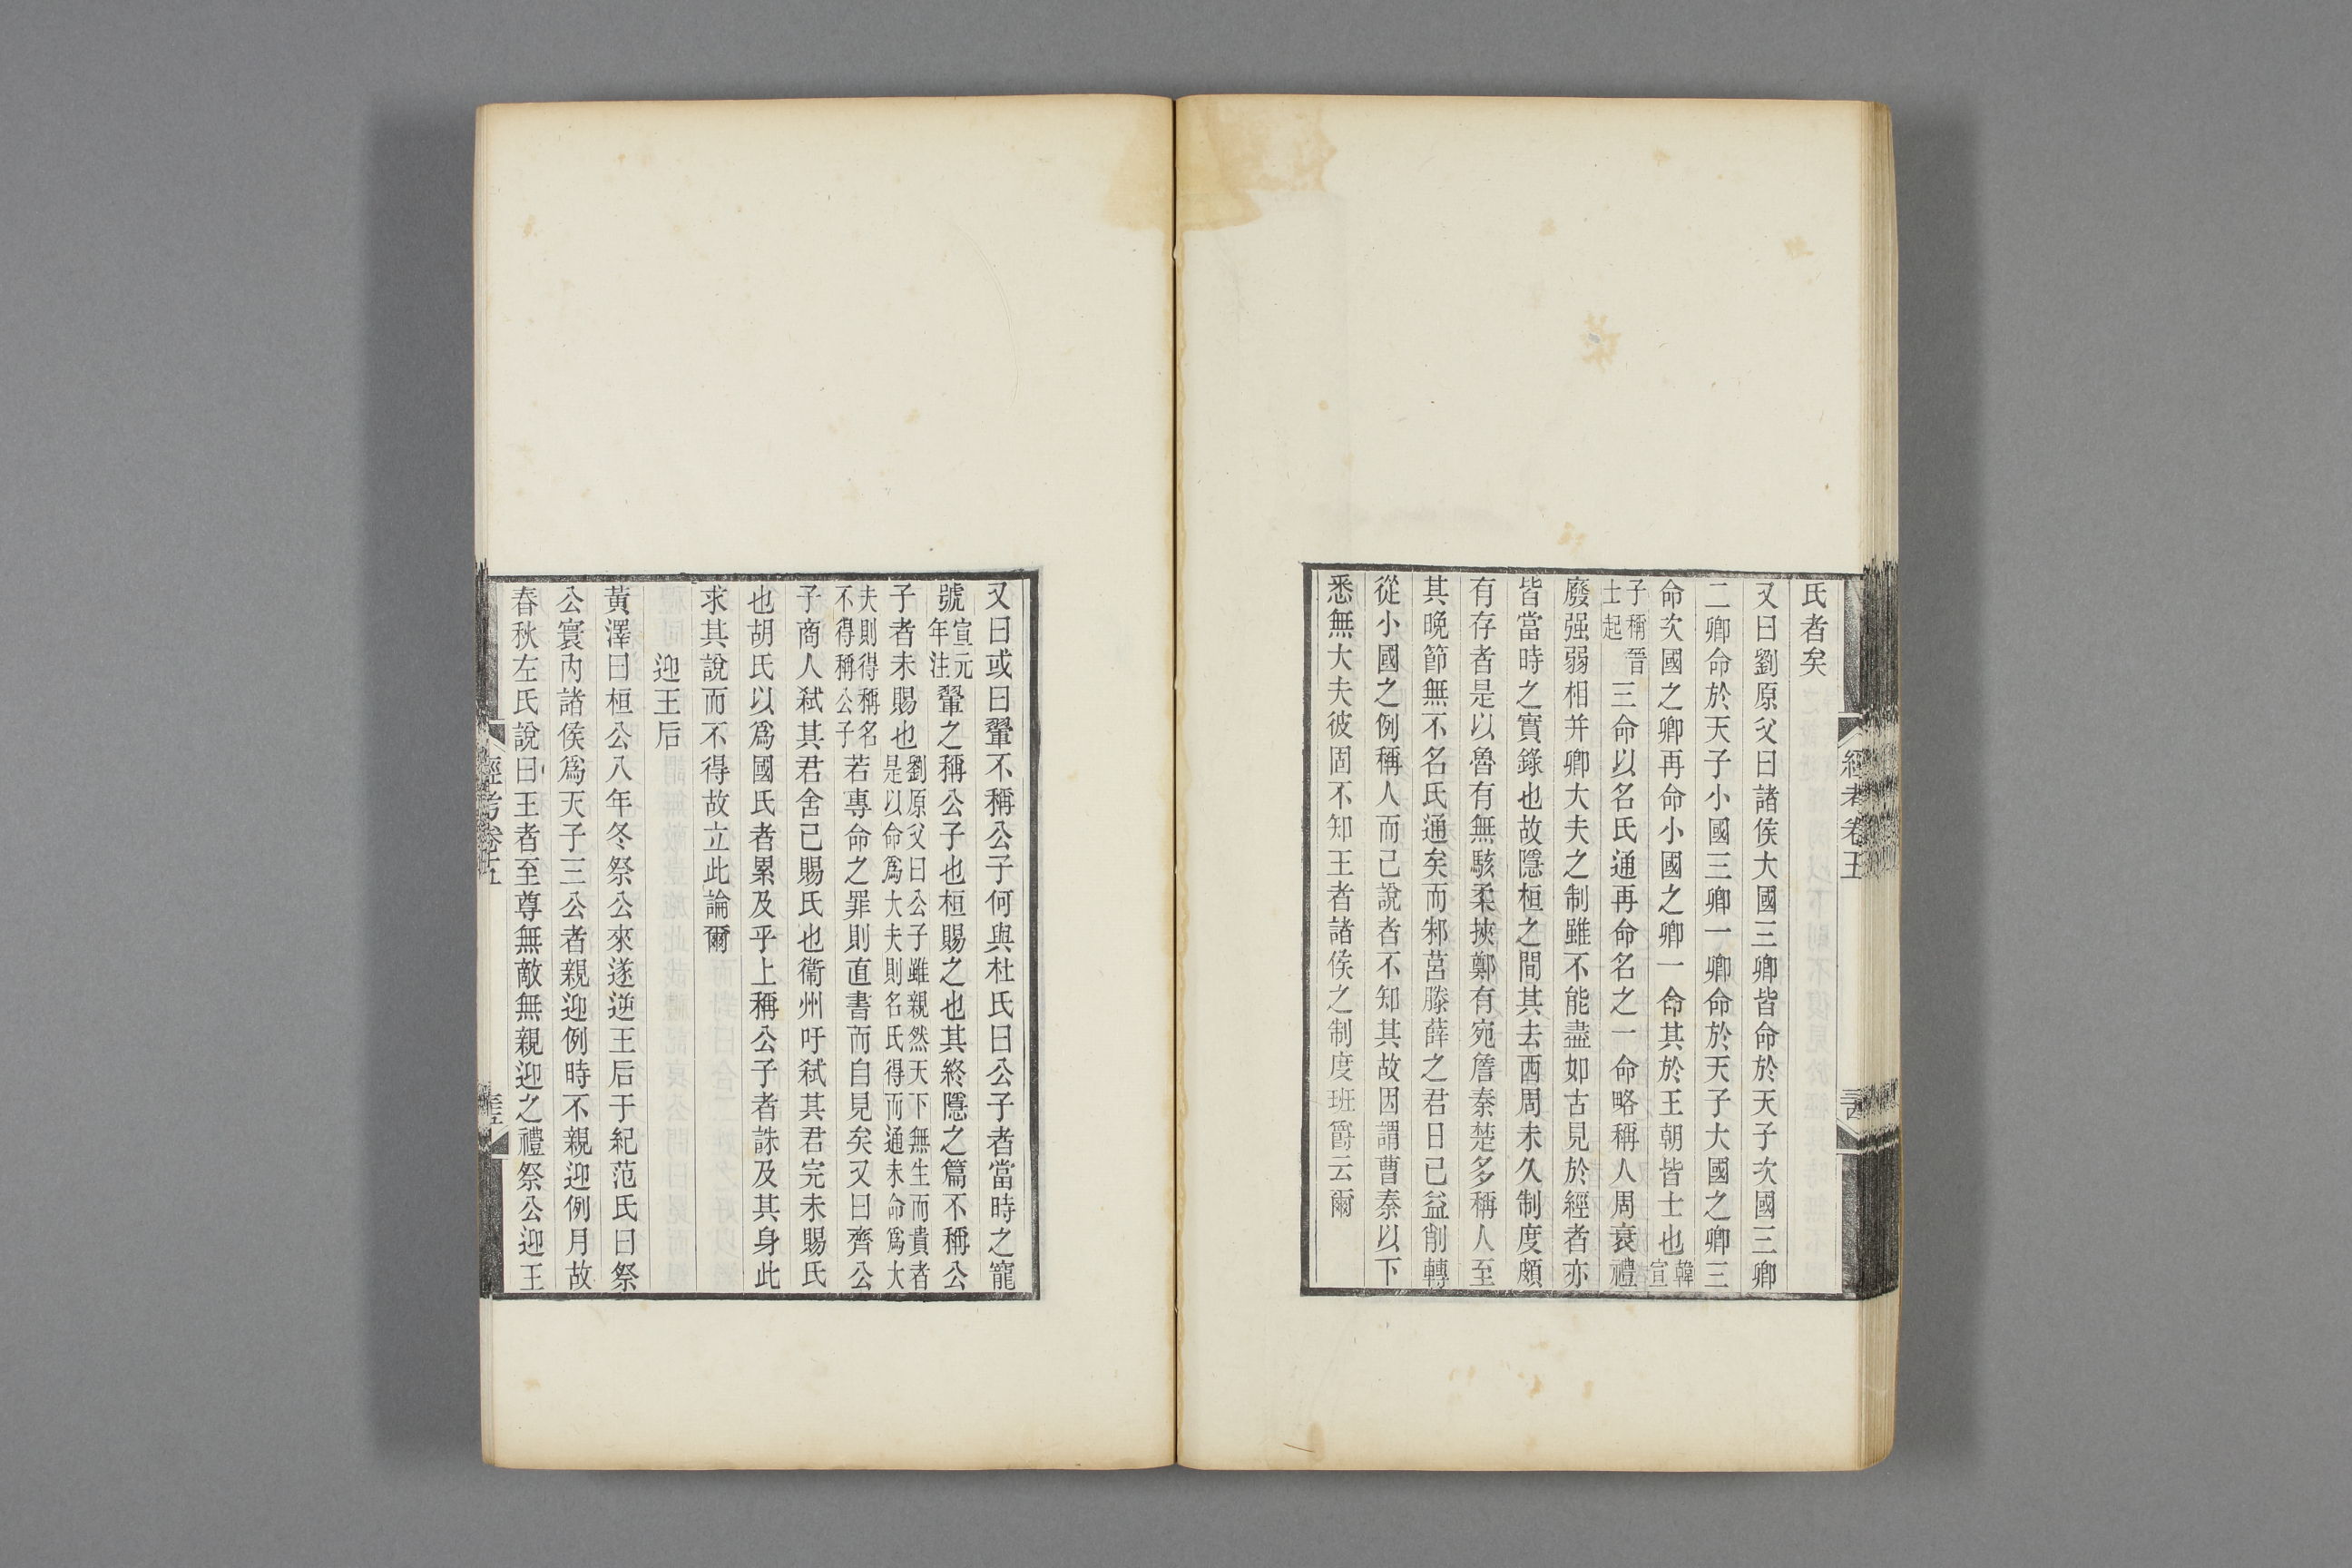 氏者矣
又曰劉原父曰諸侯大國三卿皆命於天子次國三卿
二卿命於天子小國三卿一卿命於天子大國之卿三
命次國之卿再命小國之卿一命其於王朝皆士也韓宣
子稱晉士起三命以名氏通再命名之一命略稱人周衰禮
廢强弱相并卿大夫之制雖不能盡如古見於經者亦
皆當時之實錄也故隱桓之間其去西周未久制度頗
有存者是以魯有無駭柔挾鄭有宛詹秦楚多稱人至
其晚節無不名氏通矣而邾莒滕薛之君日已益削轉
從小國之例稱人而已說者不知其故因謂曹秦以下
悉無大夫彼固不知王者諸侯之制度班爵云爾
經考卷五
又曰或曰翬不稱公子何與杜氏曰公子者當時之寵
號宣元年注翬之稱公子也桓賜之也其終隱之篇不稱公
子者未賜也劉原父曰公子雖親然天下無生而貴者是以命爲大夫則名氏得而通未命爲大
夫則得稱名不得稱公子若專命之罪則直書而自見矣又曰齊公
子商人弑其君舍已賜氏也衞州吁弑其君完未賜氏
也胡氏以爲國氏者累及乎上稱公子者誅及其身此
求其說而不得故立此論爾
迎王后
黃澤曰桓公八年冬祭公來遂逆王后于紀范氏曰祭
公寰內諸侯爲天子三公者親迎例時不親迎例月故
春秋左氏說曰王者至尊無敵無親迎之禮祭公迎王
經考卷五